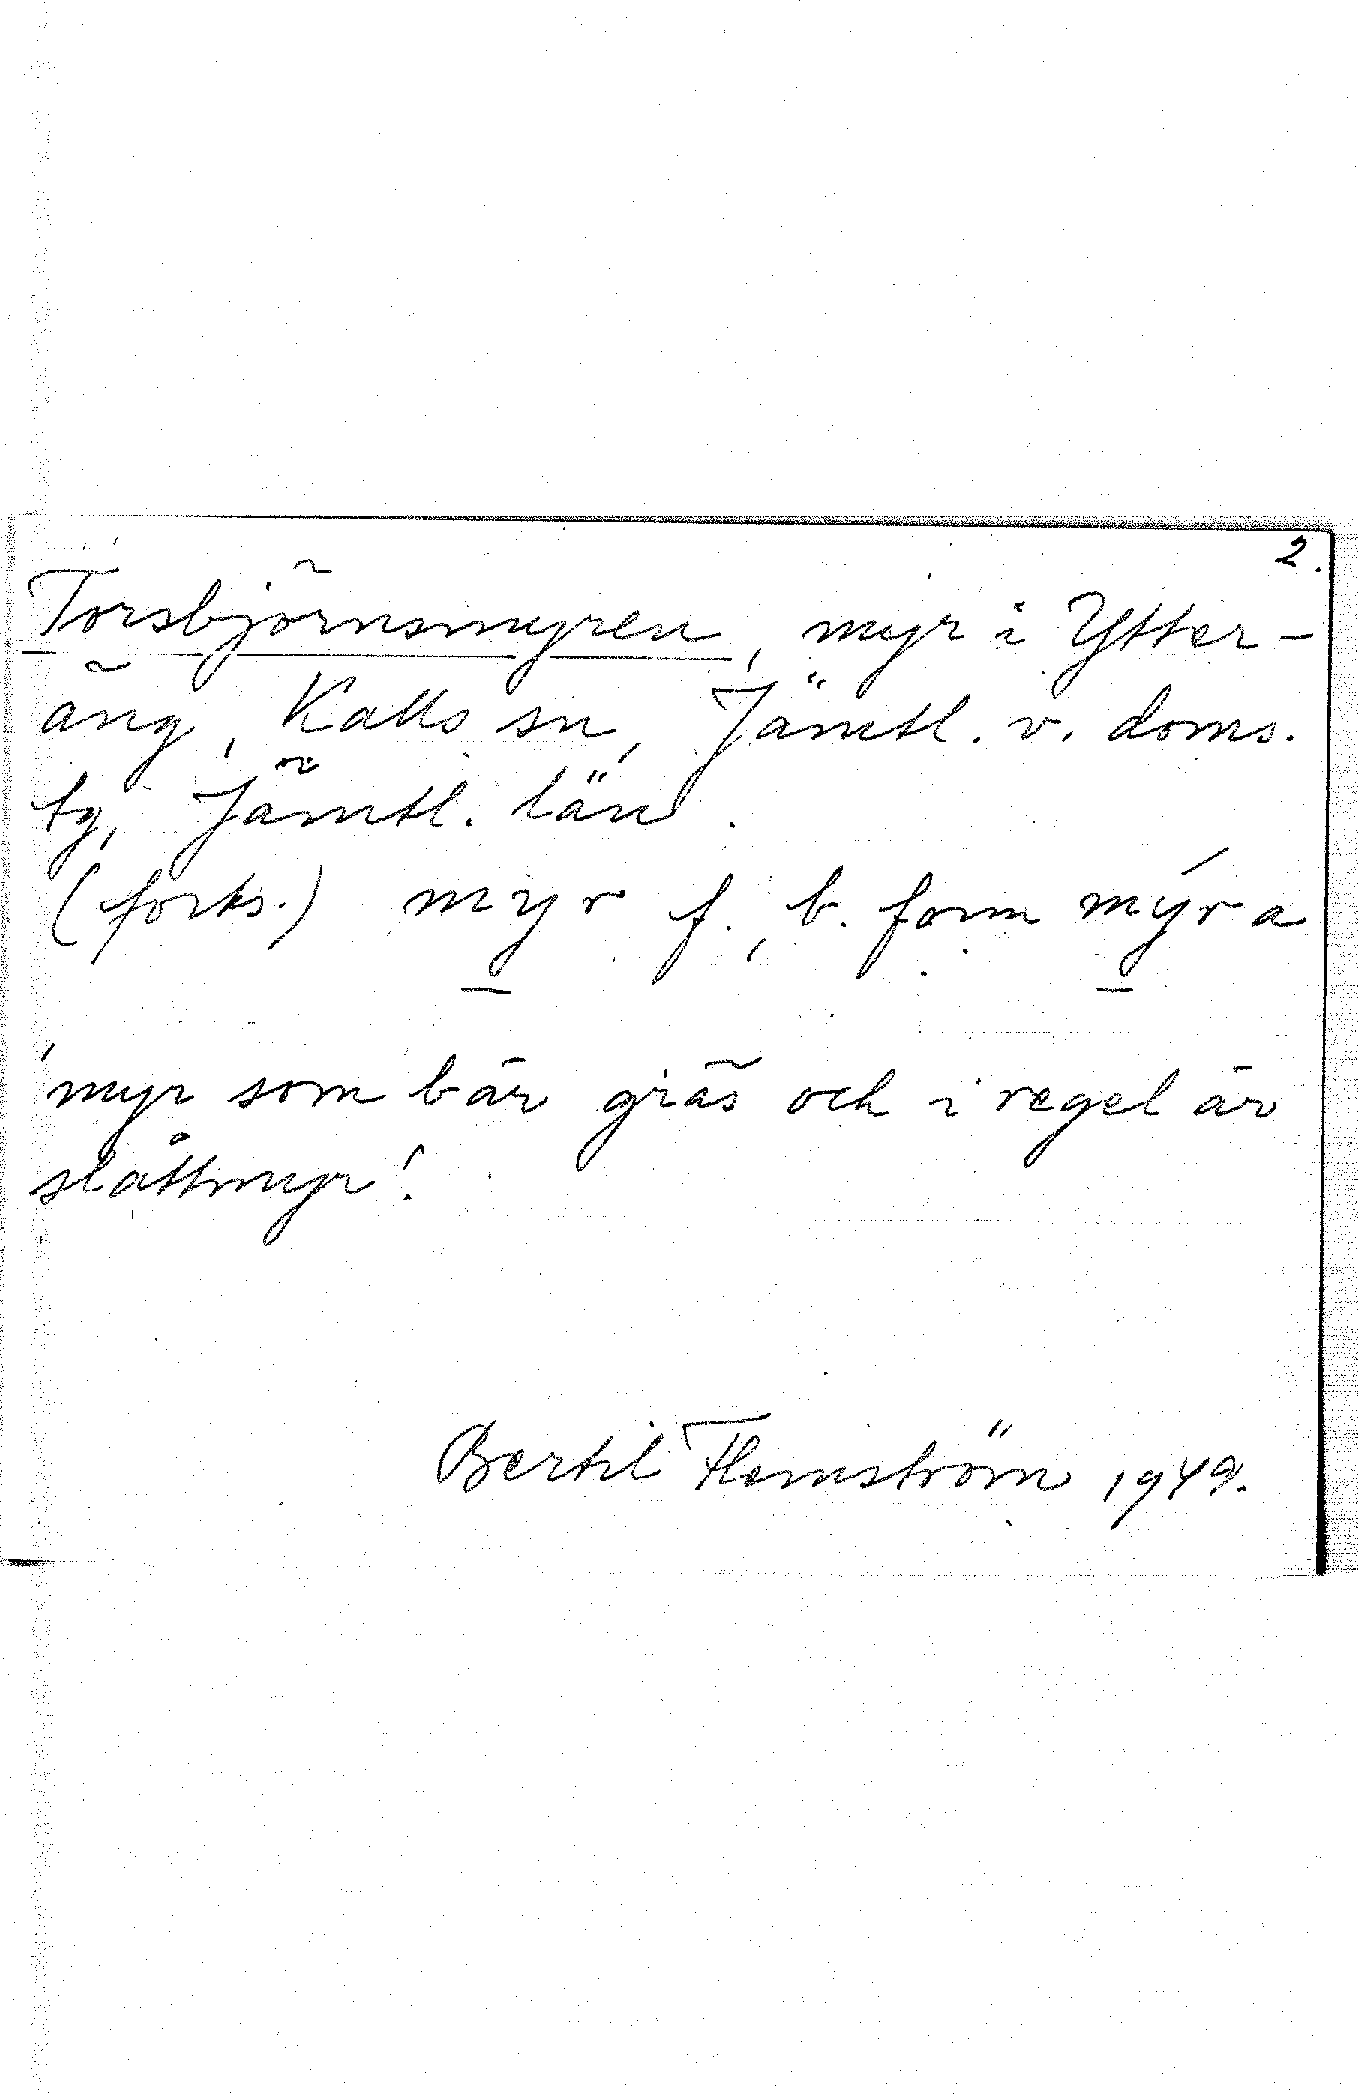 2.
Torsbjörnsmyren, myr i Ytter-
äng, Kalls sn, Jämtl. v. doms.
tg, Jämtl. län.
(forts.) myr f., b. form mýra
'myr som bär gräs och i regel är
slåttmyr'.
Bertil Flemström 1949.